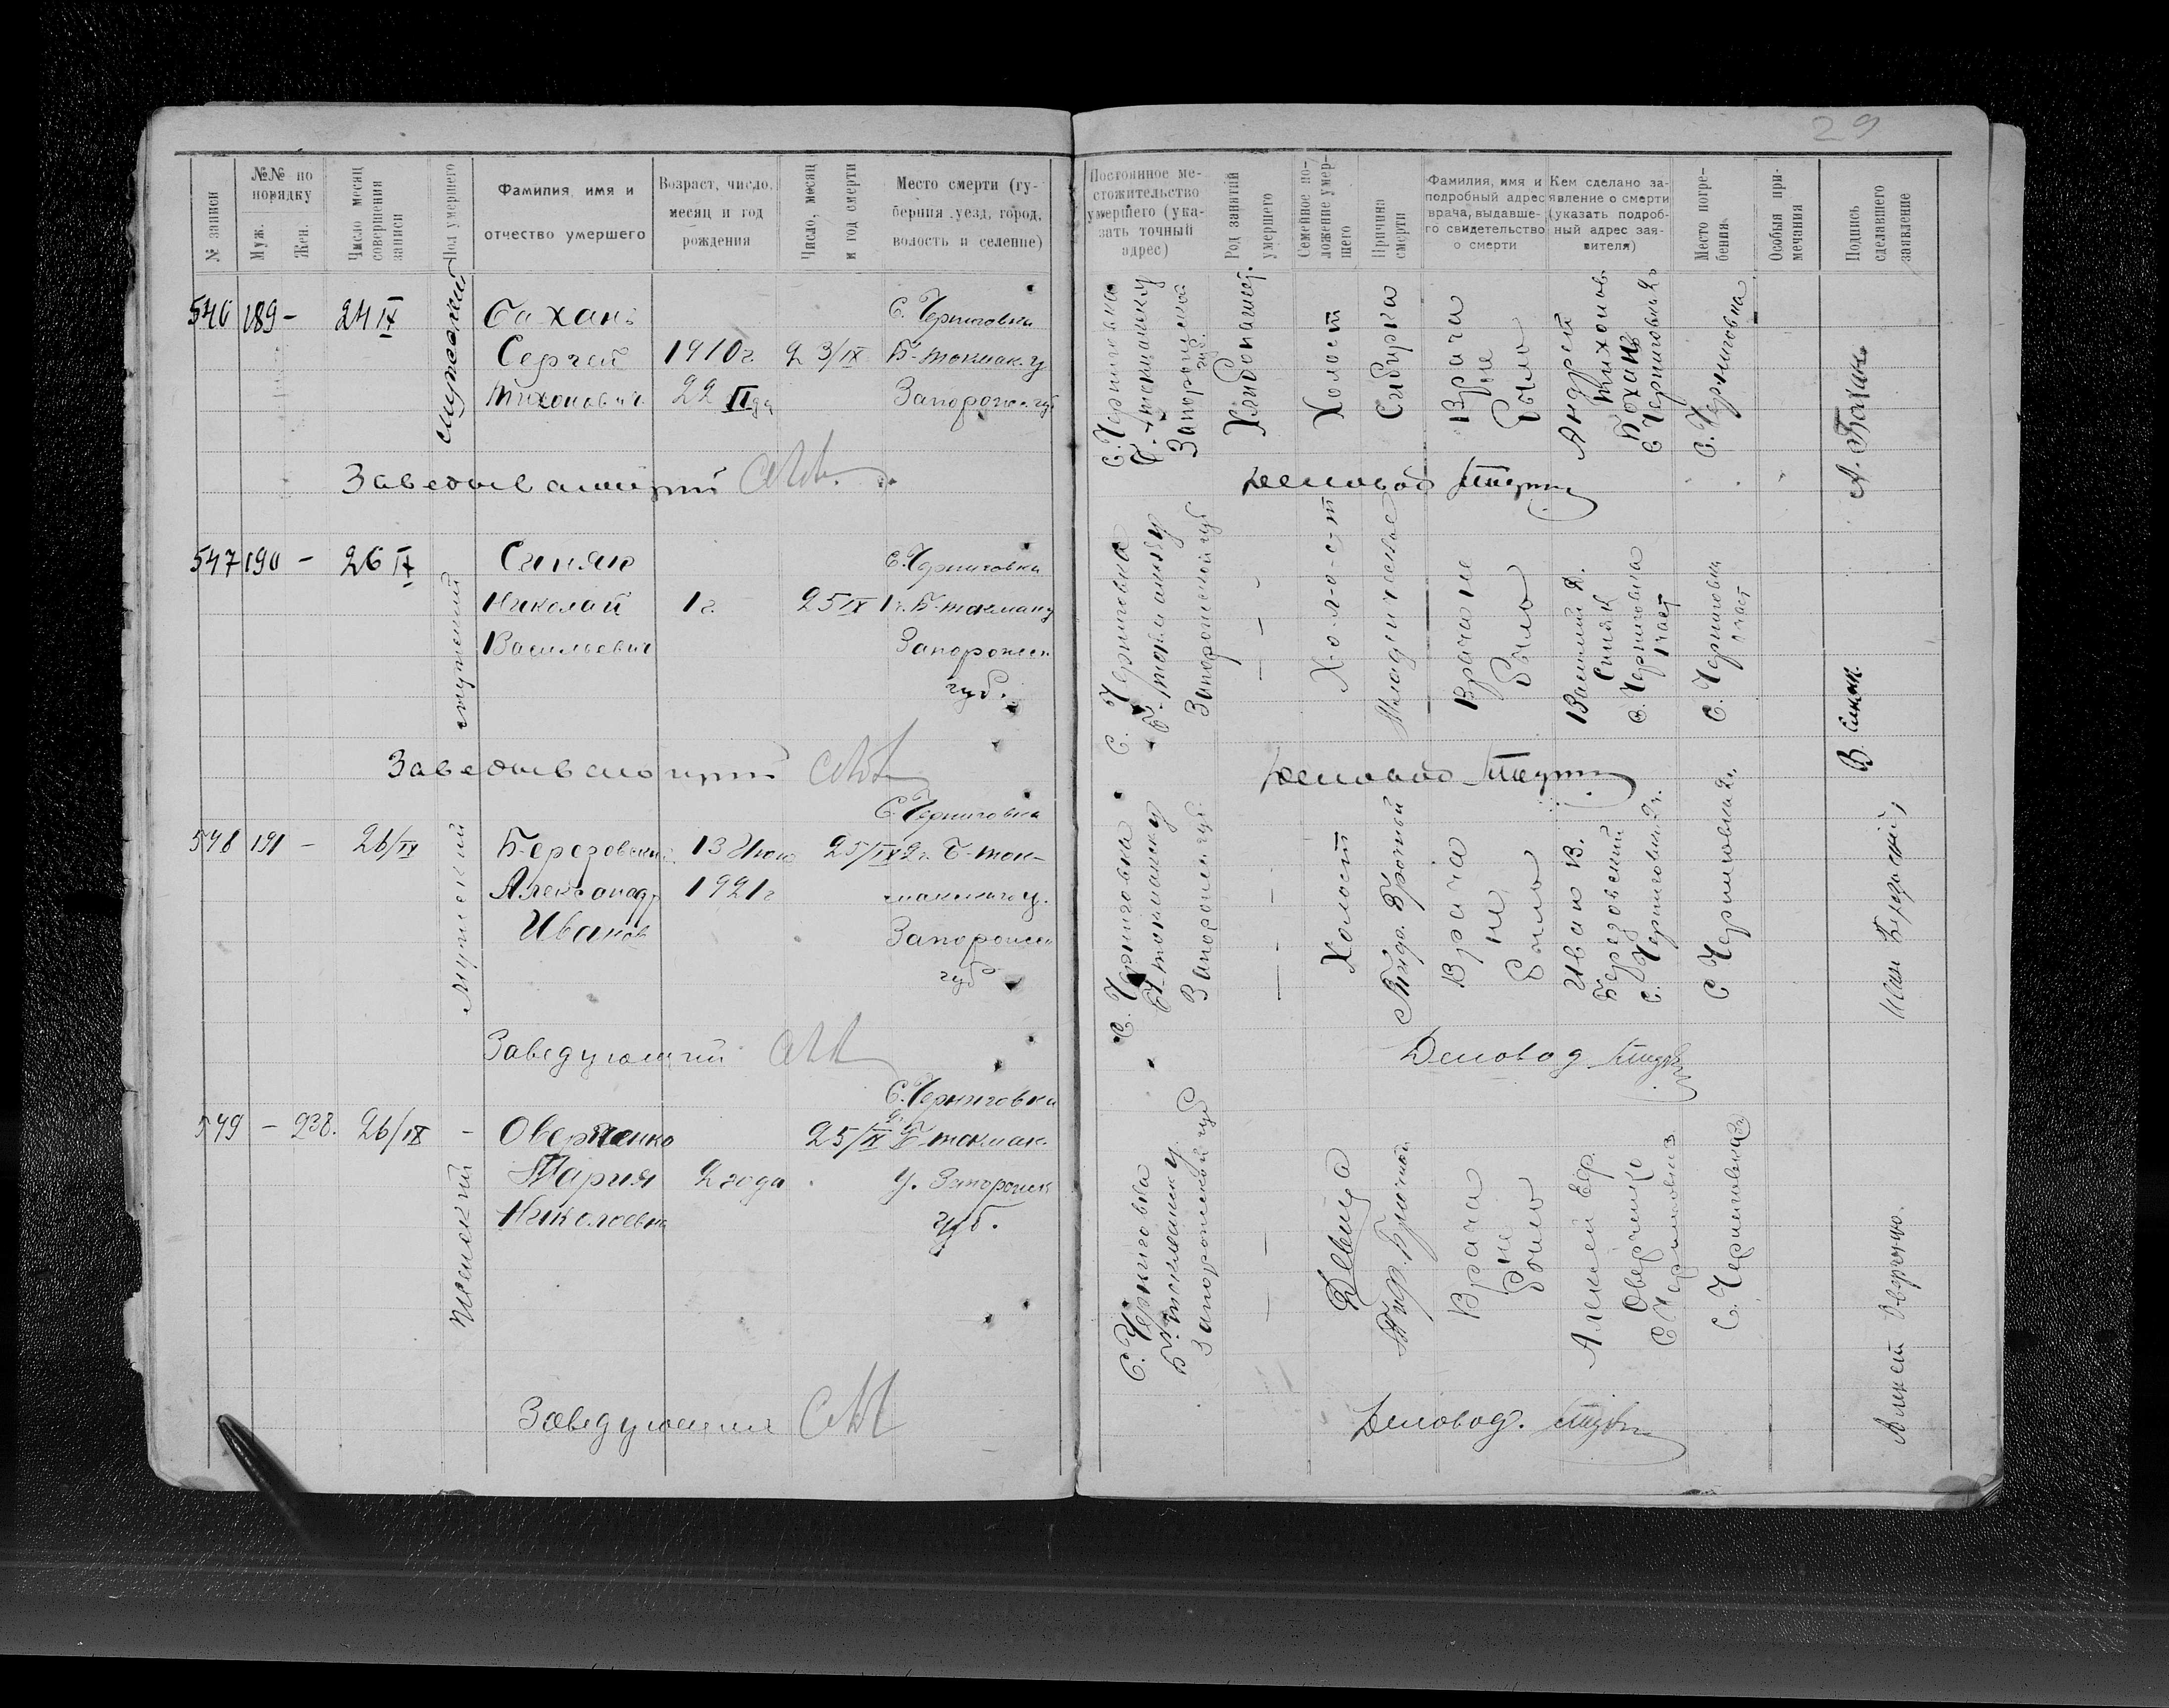 29
№ записи
№№ по порядку
Муж.
Жен.
Число месяц совершения записи
Пол умершего
Фамилия, имя и отчество умершего
Возраст, число, месяц и год рождения
Число, месяц и год смерти
Место смерти (губерния, уезд, город, волость и селение)
Постоянное местожительство умершего (указать точный адрес)
Род занятий умершего
Семейное положение умершего
Причина смерти
Фамилия, имя и подробный адрес врача, выдавшего свидетельство о смерти
Кем сделано заявление о смерти (указать подробный адрес заявителя)
Место погребения
Особыя примечания
Подпись сделавшего заявление
546 189 - 24 IX
мужской
Бахань
Сергей
Тихонович
1910 г.
22
23/IX
С. Черниговка
Б-токмак. у
Запорожск. губ
С. Черниговка
Б-токмакск у
Запорожской губ.
Хлибопашец.
Холост
Врача
не
было
Андрей
Тихонов
Бохань
С Черниговка 2
С. Черниговка
А. Бахань
Заведывающий
Деловод
547 190 - 26 IX
мужской
Синяк
Николай
Васильевич
1 г.
25 IX
С. Черниговка
1 ч. Б-токмак у
Запорожск
губ.
С. Черниговка
Запорожской губ
Х-о-л-о-с-т
Младенческое
Врача не
было
Василий
Синяк
С. Черниговка
1 част
С. Черниговка
1 част
В. Синяк
Заведывающий
Деловод
548 191 - 26/IX
Мужский
Березовский
Александр
Иванов
13 Июн
1921 г
25/IX
С. Черниговка
2 ч. Б-ток-
Запорожск
губ
С. Черниговка
Б-токмакск у
Запорожск губ.
Холост
Врача
не
было
Иван В.
Березовский
С. Черниговка 2 ч.
С Черниговка 2 ч.
Иван Березовский
Заведующий
Деловод
549 - 238. 26/IX -
Женский
Оверченко
Мария
Николаевна
2 года
25/IX
С. Черниговка
2 ч Б-токмак.
у. Запорожск
губ.
С. Черниговка
Б-токмакск у
Запорожской губ
Девица
Врача
не
было
Алексей Еф.
Оверченко
С. Черниговка
Алексей Оверченко.
Заведующий
Деловод.